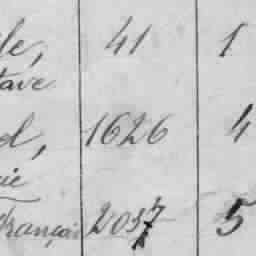 le, 41 1
tave
d, 1626 4
cie
François 2037 5